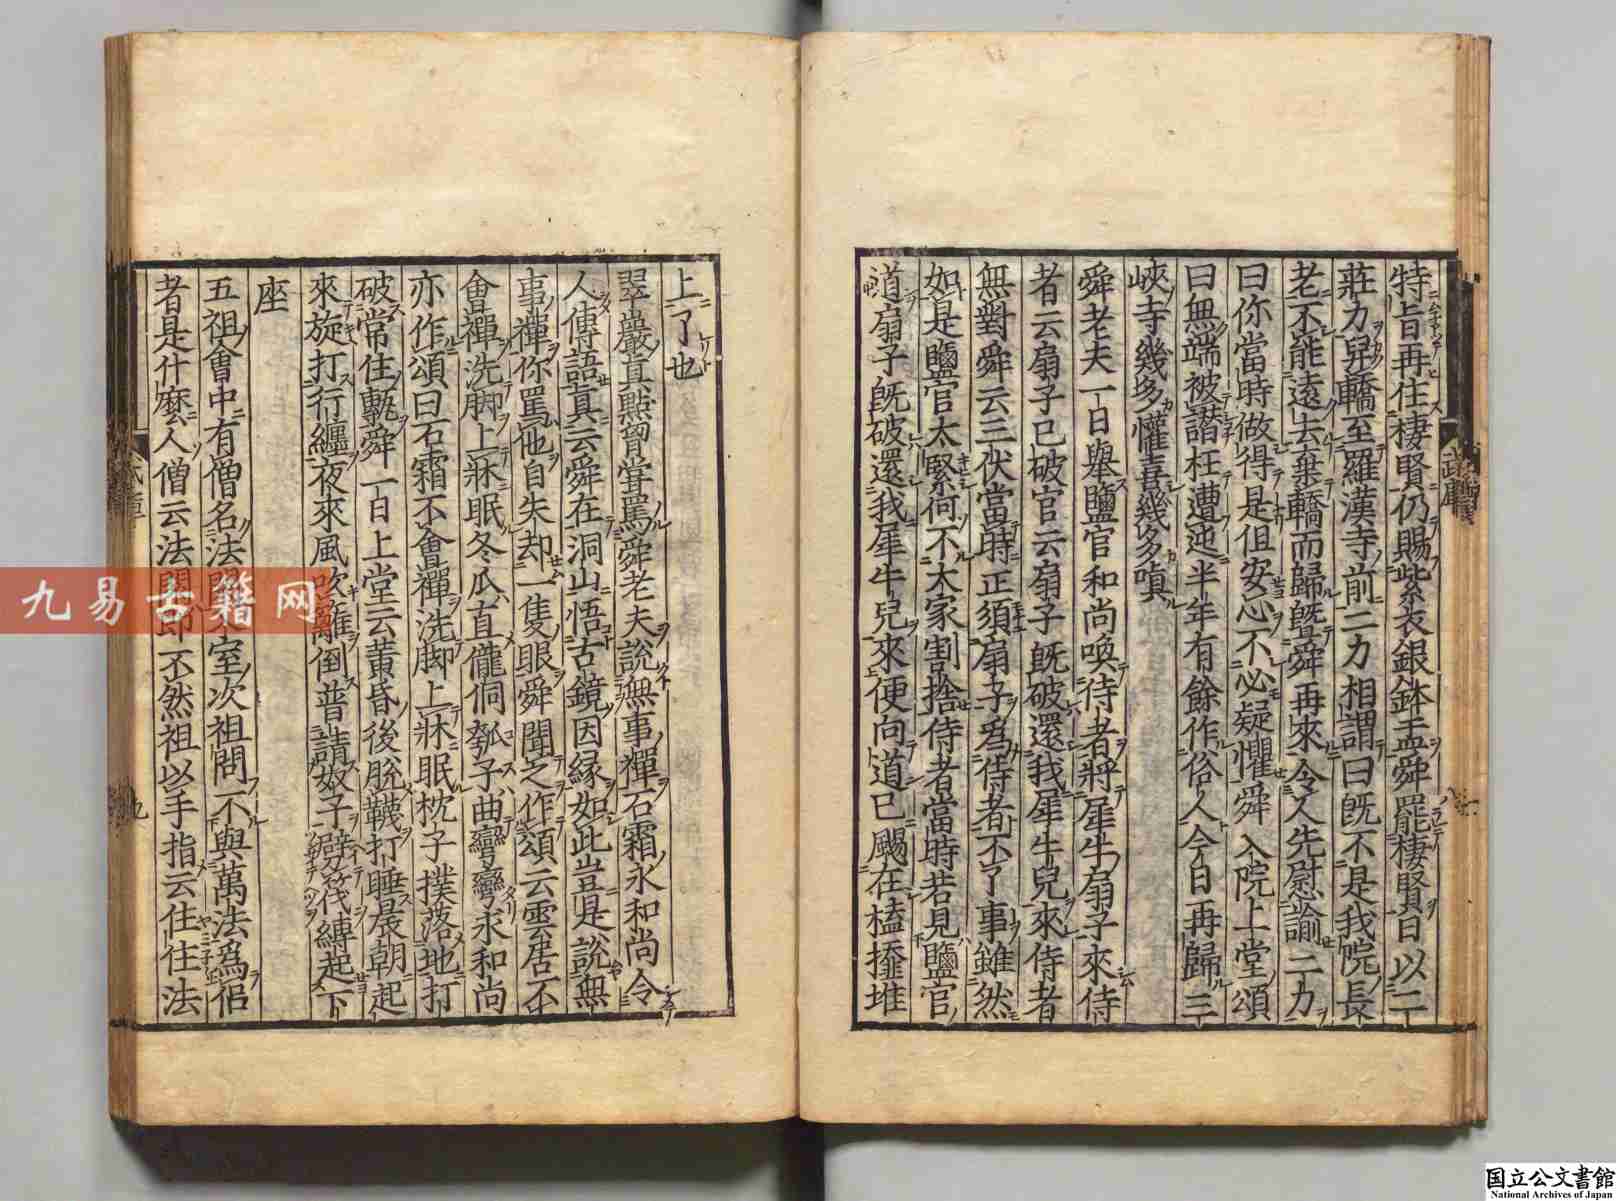 特旨再住棲賢仍賜紫衣銀鉢盂舜罷棲賢日以二
莊力舁轎至羅漢寺前二力相謂曰既不是我院長
老不能遠去棄轎而歸曁舜再來令人先慰諭二力
曰你當時做得是但安心不必疑懼舜入院上堂頌
曰無端被譖枉遭迍半年有餘作俗人今日再歸三
峽寺幾多懽喜幾多嗔
舜老夫一日舉鹽官和尚喚侍者將犀牛扇子來侍
者云扇子已破官云扇子既破還我犀牛兒來侍者
無對舜云三伏當時正須扇子爲侍者不了事雖然
如是鹽官太緊何不大家割捨侍者當時若見鹽官
道扇子既破還我犀牛兒來便向道已颺在榼𣜂堆
武庫
上了也
翠巖真點胷嘗罵舜老夫說無事禪石霜永和尚令
人傳語真云舜在洞山悟古鏡因縁如此豈是說無
事禪你罵他自失却一隻眼舜聞之作頌云雲居不
會禪洗脚上牀眠冬瓜直儱侗瓠子曲彎彎永和尚
亦作頌曰石霜不會禪洗脚上牀眠枕子撲落地打
破常住甎舜一日上堂云黄昏後脫韈打睡晨朝起
來旋打行纏夜來風吹籬倒普請奴子劈篾縛起下
座
五祖會中有僧名法閦入室次祖問不與萬法爲侶
者是什麽人僧云法閦即不然祖以手指云住住法
武庫
九
九易古籍网
国立公文書館
National Archives of Japan